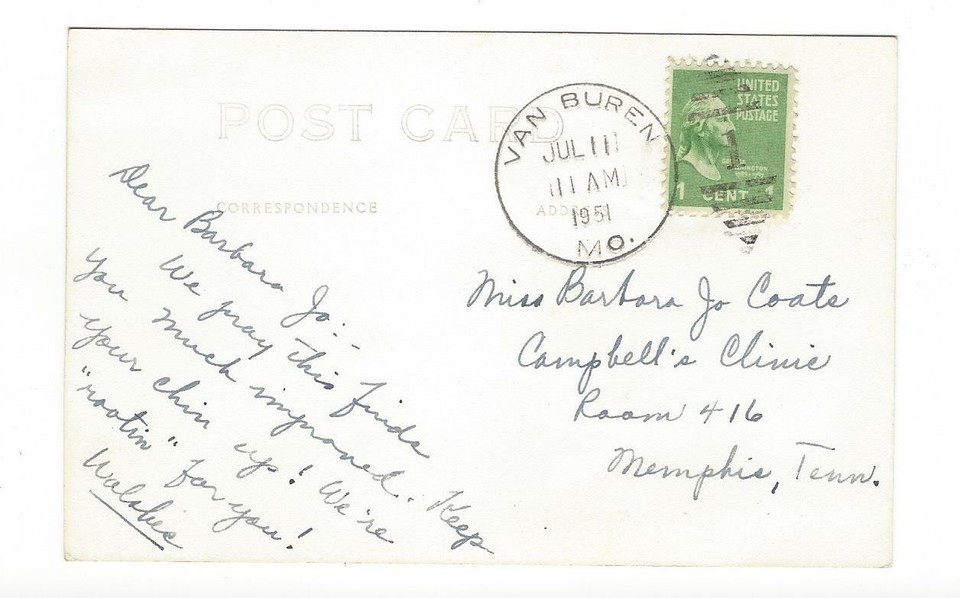 POST CARD
CORRESPONDENCE
ADDRESS
VAN BUREN
JUL 11
11 AM
1951
MO.
UNITED
STATES
POSTAGE
1
GEORGE
WASHINGTON
1 CENT 1
Dear Barbara Jo: -
We pray this finds
you much improved. Keep
your chin up! We're
"rootin" for you!
Miss Barbara Jo Coats
Campbell's Clinic
Room 416
Memphis, Tenn.